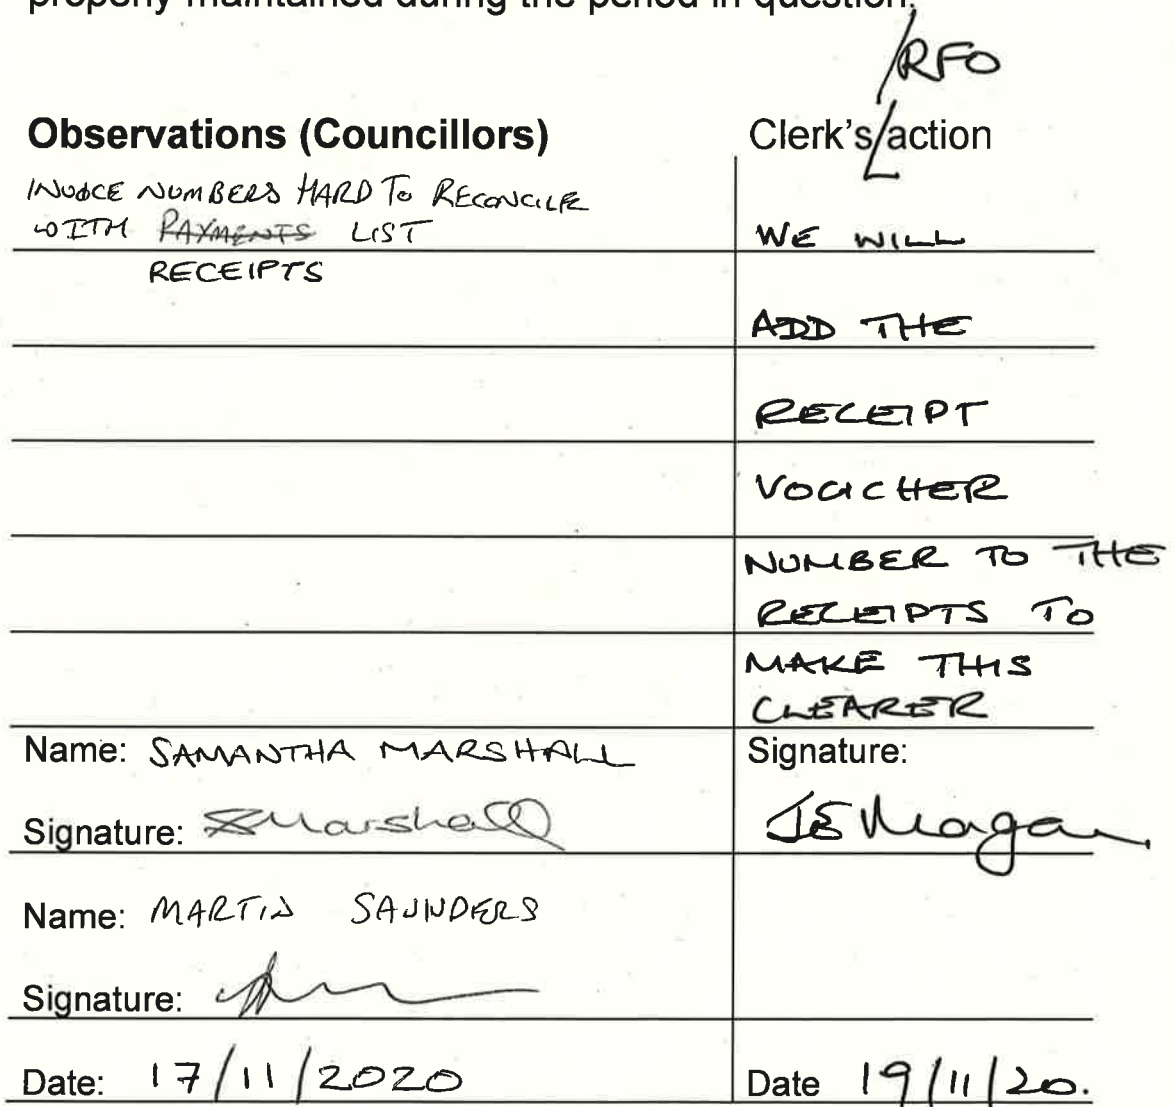 properly maintained during the period in question.
/RFO
Observations (Councillors)
Clerk's/action
INVOICE NUMBERS HARD TO RECONCILE
WITH PAYMENTS LIST
RECEIPTS
WE WILL
ADD THE
RECEIPT
VOUCHER
NUMBER TO THE
RECEIPTS TO
MAKE THIS
CLEARER
Name: SAMANTHA MARSHALL
Signature: SMarshall
Signature:
Name: MARTIN SAUNDERS
Signature:
Date: 17/11/2020
Date 19/11/20.